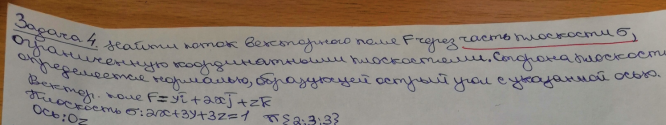 Задача 4. Найти поток векторного поля F через часть плоскости σ,
ограниченную координатными плоскостями. Сторона плоскости
определяется нормалью, образующей острый угол с указанной осью.
Вектор. поле F = yi + 2xj + zk
Плоскость σ: 2x+3y+3z=1 n{2;3;3}
Ось: Oz